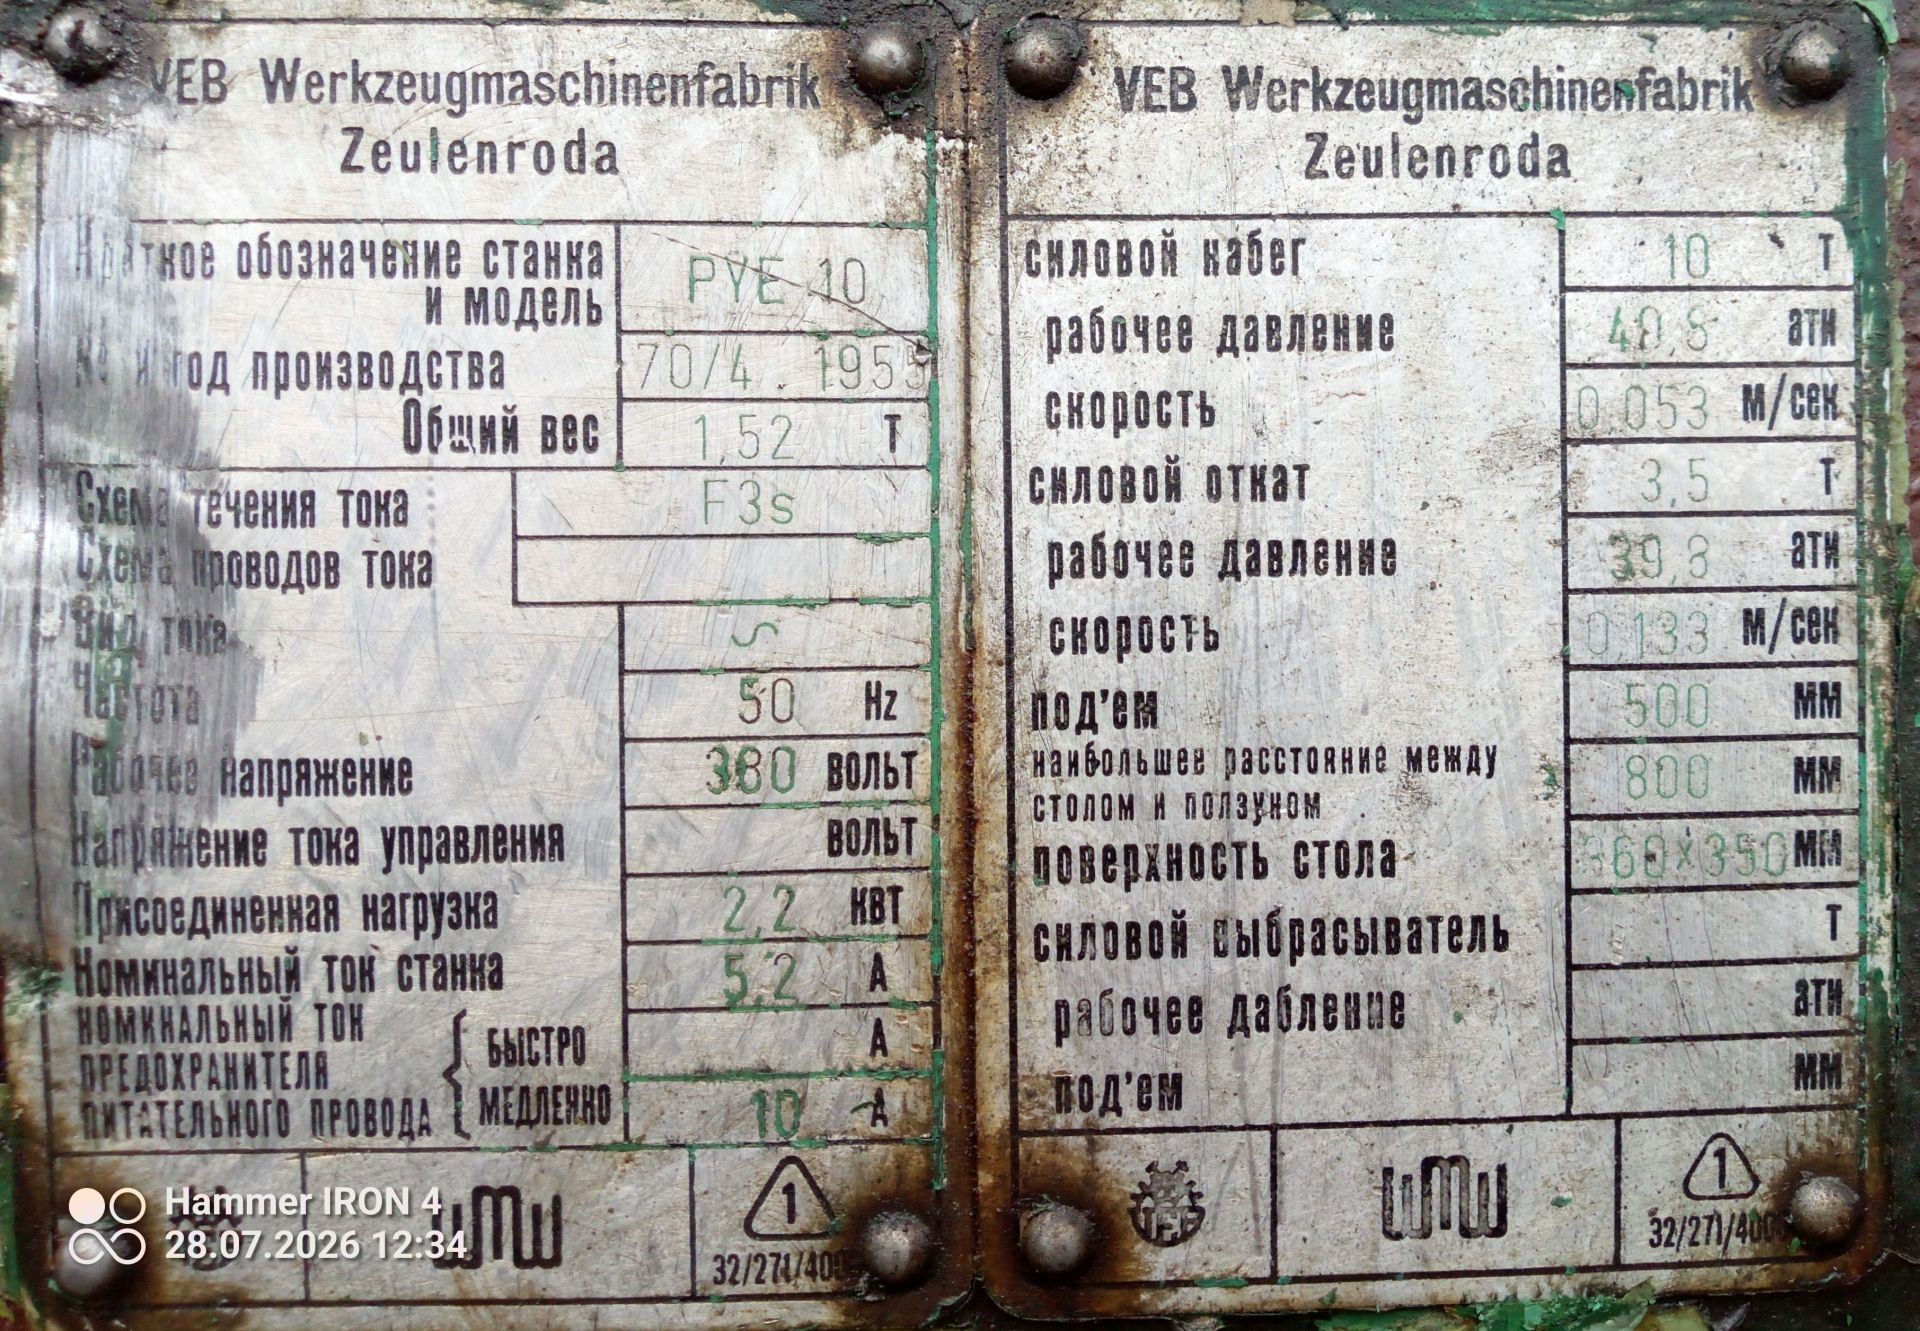 VEB Werkzeugmaschinenfabrik
Zeulenroda
Краткое обозначение станка
и модель
PYE 10
№ и год производства
70/4 . 1955
Общий вес
1,52 Т
Схема течения тока
F3s
Схема проводов тока
Вид тока
Частота
50 Hz
Рабочее напряжение
380 ВОЛЬТ
Напряжение тока управления
ВОЛЬТ
Присоединенная нагрузка
2,2 КВТ
Номинальный ток станка
5,2 А
НОМИНАЛЬНЫЙ ТОК
ПРЕДОХРАНИТЕЛЯ
ПИТАТЕЛЬНОГО ПРОВОДА
БЫСТРО
А
МЕДЛЕННО
10 А
WMW
1
32/271/400
VEB Werkzeugmaschinenfabrik
Zeulenroda
силовой набег
10 Т
рабочее давление
40,8 ати
скорость
0,053 м/сек
силовой откат
3,5 Т
рабочее давление
39,8 ати
скорость
0,133 м/сек
под'ем
500 мм
наибольшее расстояние между
столом и ползуном
800 мм
поверхность стола
360x350 мм
силовой выбрасыватель
Т
рабочее дабление
ати
под'ем
мм
WMW
1
32/271/400
Hammer IRON 4
28.07.2026 12:34